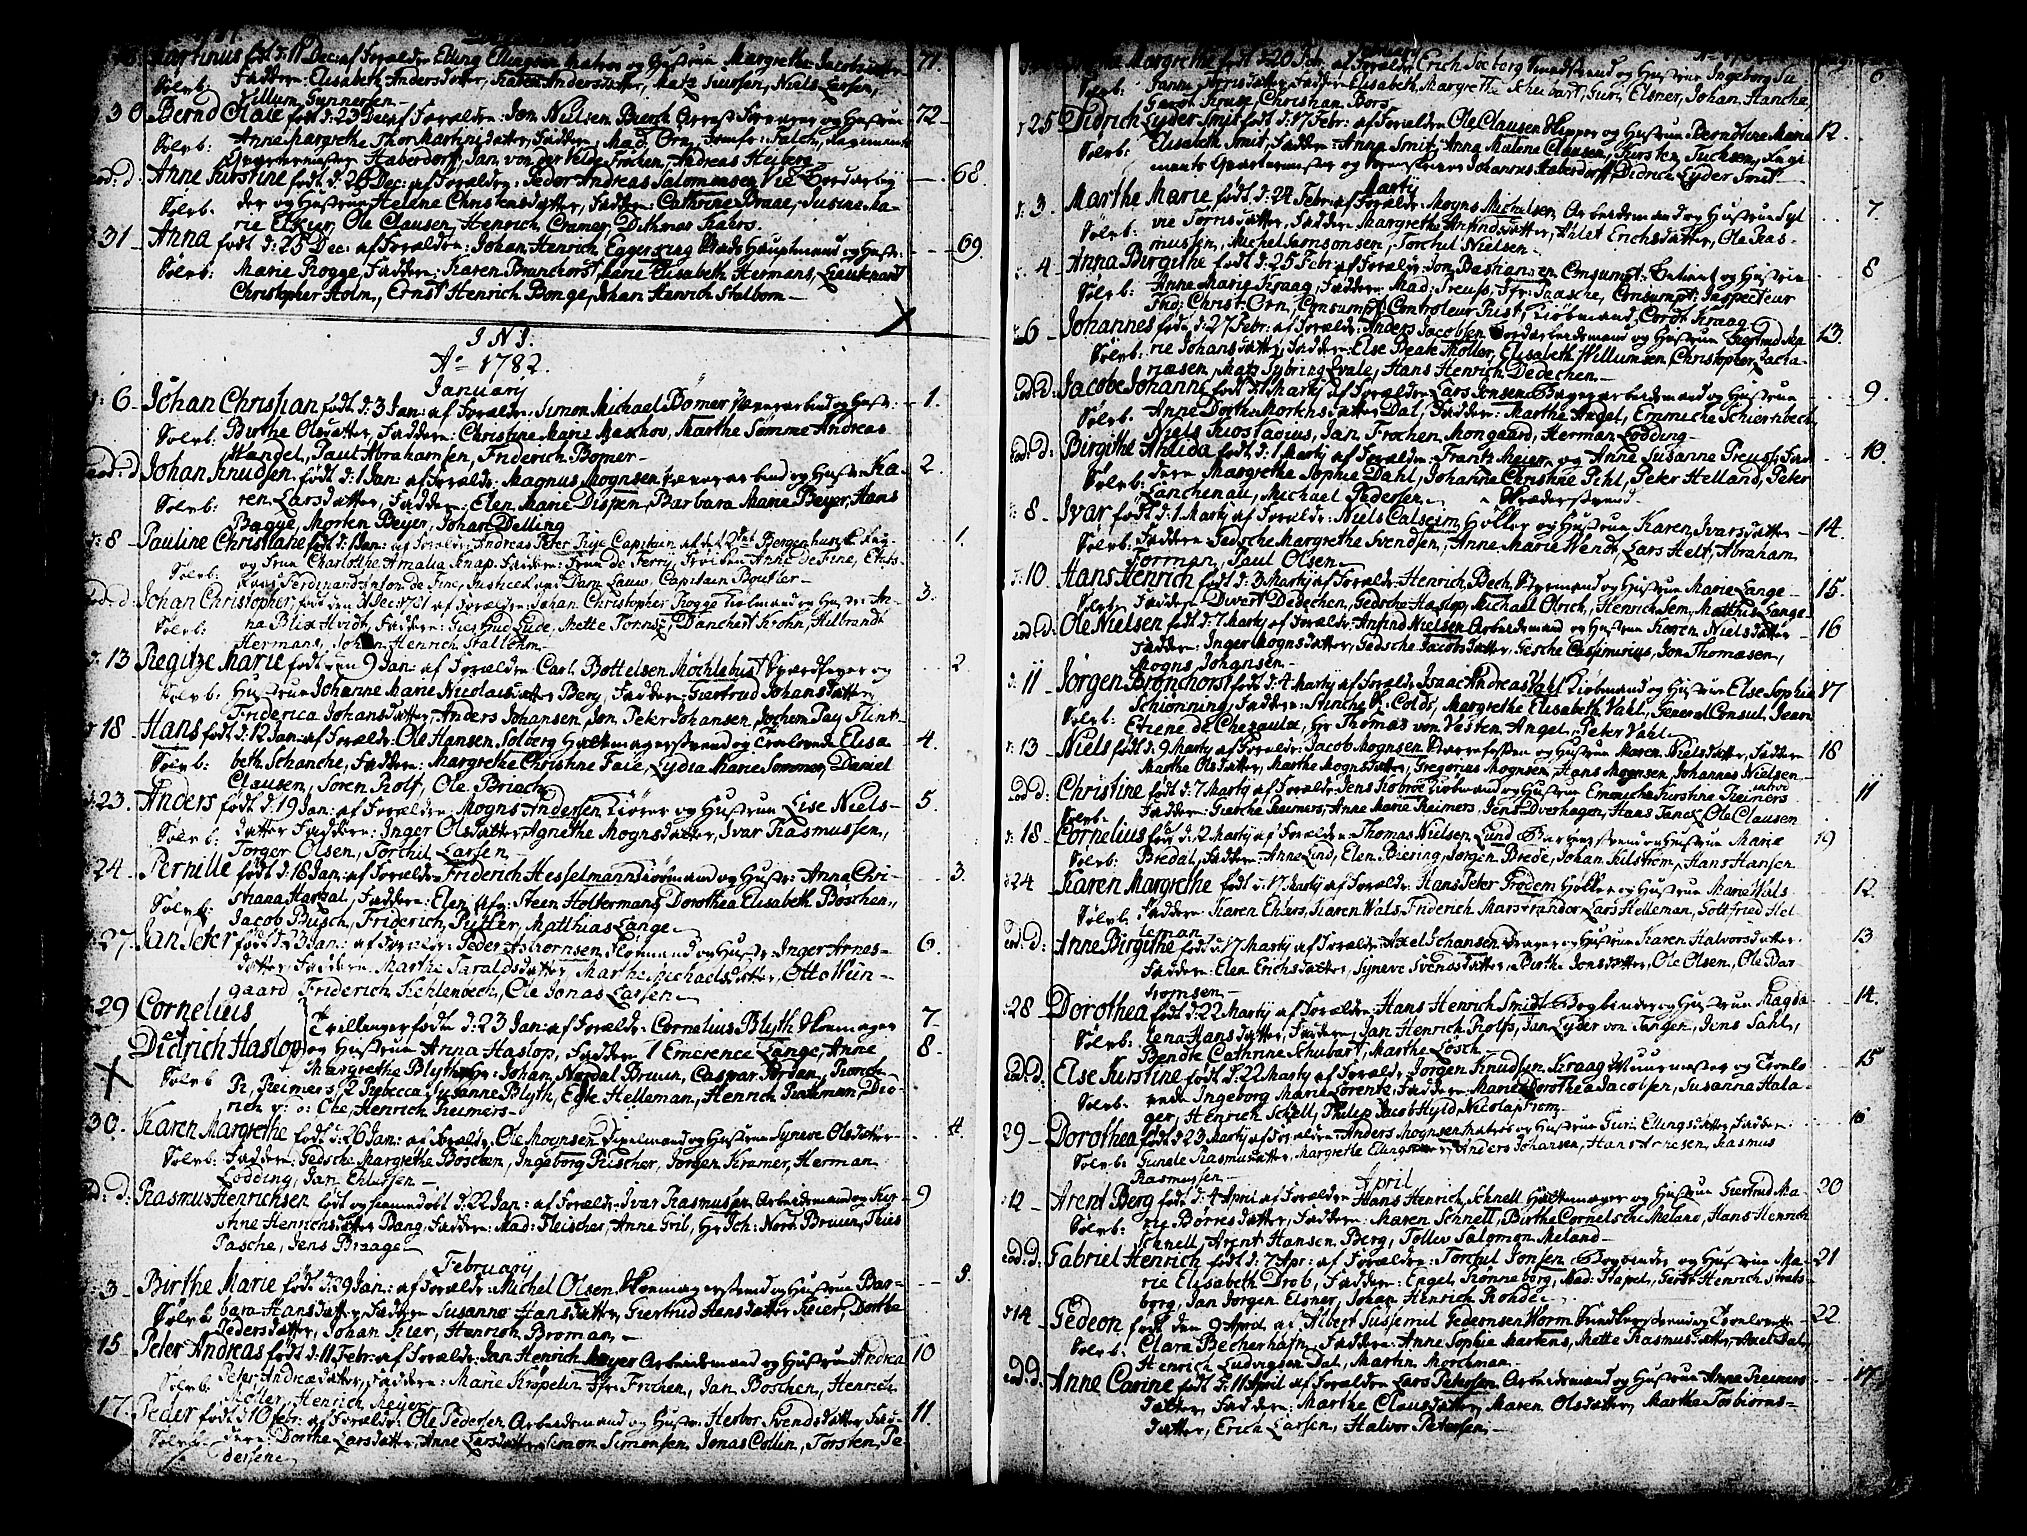 Martinus født d: 11 Dec: af Forældre Elling Ellingsen Matros og Hustrue Margrethe Jacobsdatter 71.
Sølvb: Faddere: Elisabeth Andersdatter, Karen Andersdatter, Niels Larsen,
Willum Gunnersen
30 Bernd Claie født d: 23 Dec: af Forældre Jon Nielsen Buch og Hustrue 72
Sølvb: Anne Margrethe Thor Martinidatter, Faddere, Mad. Orn, Jomfr: Falch, Regiments
Qvarteermester Haberdorff, Jan von der Velde Frochen, Andreas Heiberg
eod: d. Anne Kirstine født d: 26 Dec: af Forældre: Peder Andreas Salomonsen Vie Bordarbej 68.
Sølvb. der og Hustrue Helene Christensdatter, Faddere: Cathrine Braae, Susine Ma-
rie Elkier, Ole Clausen, Henrich Cramer, Dithmar Kahrs.
31 Anna født d: 25 Dec: af Forældre: Johan Henrich Eggerking og Hustr: 69.
Sølvb: Marie Rogge, Faddere: Karen Brunchorst, Lene Elisabeth Hermans, Lieutenant
Christopher Holm, Ernst Henrich Bonge, Johan Henrich Stalbom
I N J.
Ao 1782.
January
6 Johan Christian født d: 3 Jan: af Forældre: Simon Michael Bømer og Hustr: 1.
Sølvb: Birthe Olsdatter, Faddere: Christine Marie Maschov, Marthe Sømme Andreas
Hangel, Paul Abrahamsen, Friderich Bomer
eod: d Johan Knudsen født d: 1 Jan: af Forældre: Magnus Mognsen og Hustr: Ka- 2.
Sølvb: ren Larsdatter, Faddere: Elen Marie Dispen, Barbara Marie Beyer, Hans
Bagge, Morten Beyer, Johan Delling
8 Pauline Christiane født d: 1 Jan: af Forældre Andreas Peter Frije Capitain af det 2det Bergenhuusche Reg: 1.
Sølvb. og Frue Charlothe Amalia Knap. Faddere: Frue de Ferry, Frøiken Anne de Fine, Etats-
raad Ferdinand Anton de Fine, Justiceraad Dam Lauw, Capitain Boutler
eod: d Johan Christopher, født den 31 Dec: 1781 af Forældre: Johan Christopher Rogge Kiøbmand og Hustr: An- 3.
Sølvb: na Blix Hvidt, Faddere: Gies Gud Gude, Mette Tornøe, Danchert Krohn, Hilbrandt
Hermans, Johan Henrich Stallbom
13 Regitze Marie født den 9 Jan: af Forældre Carl Bottelsen Mochlebust og 2
Sølvb. Hustrue Johanne Marie Nicolaisdatter Berg, Faddere: Giertrud Johansdatter,
Friderica Johansdatter, Anders Johansen, Jon Peter Johansen, Jochum Pay Flint
18 Hans født d: 12 Jan: af Forældre Ole Hansen Solberg og Trolovede Elisa 4.
Sølvb: beth Schanche, Faddere: Margrethe Christine Faie, Lydia Marie Sommer, Daniel
Clausen, Søren Rolf, Ole Briech
23. Anders født d: 19 Jan: af Forældre: Mogns Andersen Kiører og Hustrue Lise Niels- 5.
Sølvb: datter Faddere: Inger Olsdatter, Agnethe Mognsdatter, Ivar Rasmussen,
Torger Olsen, Torchil Larsen
24 Pernille født d: 18 Jan: af Forældre Friderich Hesselmann og Hustr: Anna Chri- 3.
Sølvb: stiana Hartal, Faddere: Elen Steen Holtermans, Dorothea Elisabeth Boschen,
Jacob Busch, Friderich Rutler, Matthias Lange
27. Jan Peter født d: 23 Jan: af Forældre Peder Asbiørnsen og Hustr: Inger Arnes- 6.
datter, Faddere: Marthe Taraldsdatter, Marthe Michaelsdatter, Otto Wiin-
gaard, Friderich Kichlenbech, Ole Jonas Larsen
29 Cornelius
Didrich Haslop
Tvillinger født d: 23 Jan: af Forældre Cornelius Blyth 7.
og Hustrue Anna Haslop, Faddere 1 Emerence Lange, Anne 8.
Sølvb Margrethe Blyth, Hr: Johan Nordal Bruun, Caspar Forden, Tronch
R. Reimers / 2 Rebecca Susanne Blyth, Egle Helleman, Henrich Dio-
rich v: d: Ohe, Henrich Reimers
30. Karen Margrethe født d: 26 Jan: af Forældre Ole Mognsen og Hustrue Syneve Olsdatter 4.
Sølvb: Faddere: Gedsche Margrethe Bøschen, Ingeborg Rischer, Jørgen Kramer, Herman
Lødding, Jan Ehlersen
eod: d: Rasmus Henrichsen født og hiemmedøbt d: 22 Jan: af Forældre: Ivar Rasmussen Arbeidsmand og Hustr: 9
Ane Henrichsdatter Bang, Faddere: Mad: Fleischer, Anne Grib, Hr: Joh: Nord: Bruun, Thies
Pasche, Jens Braage
February
3 Birthe Marie født d: 29 Jan: af Forældre: Michel Olsen og Hustrue Bar- 5.
Sølvb bara Hansdatter, Faddere Susanne Hansdatter, Giertrud Hansdatter Keier, Dorthe
Pedersdatter, Johan Kier, Henrich Broman,
15 Peter Andreas født d: 11 Febr: af Forældre Jan Henrich Meyer Arbeidsmand og Hustrue Andrea 10
Sølvb. Peter Andreædatter, Faddere: Marie Kropelin, Jfr: Frochen, Jan Boschen, Henrich
Møller, Henrich Meyer
17. Peder født d: 10 febr: af Forældre: Ole Pedersen Arbeidsmand og Hustr: Herbor Svendsdatter Fad- 11.
Sølvb. dere: Dorthe Larsdatter, Anne Larsdatter Simon Simonsen, Jonas Collin, Torsten Pe-
dersen
February
Margrethe født d: 20 Febr. af Forældre Erich Søeborg og Hustrue Ingeborg Su 6
Sølvb: sanne Jorrisdatter, Faddere Elisabeth Margrethe Schubart, Guri Elsner, Johan Hanche,
Gerdt Kruse, Christian Bors
25 Didrich Lyder Smit født d: 17 Febr: af Forældre Ole Clausen Kipper og Hustrue Berndtine Maria 12.
Sølvb: Elisabeth Smit, Faddere: Anna Smit, Anna Malene Clausen, Kirsten Fuchsen, Regi
ments Qvarteermester Johannes Haberdorff, Didrich Lyder Smit
Marty
3. Marthe Marie født d: 24 Febr: af Forældre Mogns Michelsen Arbeidsmand og Hustrue Syl 7.
Sølvb: vie Torrisdatter, Faddere Margrethe Anfindsdatter, Ahlet Erichsdatter, Ole Ras-
mussen, Michel Samsonsen, Torchil Nielsen
4 Anna Birgithe født d: 25 Febr: af Forældre: Jon Bastiansen Consumpt: Betient og Hustrue 8
Sølvb: Anne Marie Kraag, Faddere: Mad: Preuss, Jfr: Paasche, Consumpt: Inspecteur
Frid: Christ: Orn, Consumpt: Controleur Rist, Kiøbmand, Cordt Kraag
6 Johannes født d: 27 Febr: af Forældr: Anders Jacobsen Bordarbeidsmand og Hustrue Giertrud Ma 13.
Sølvb: rie Johansdatter, Faddere: Else Beate Møller, Elisabeth Willumsen, Christopher Zacta-
riæsen, Mats Sybring Evale, Hans Henrich Dedechen
eod: d. Jacobe Johanne født d: 1 Marty af Forældre Lars Jensen og Hustrue 9.
Sølvb: Anne Dorthe Mortensdatter Dal, Faddere: Marthe Angel, Emmiche Schiernbech,
Niels Kiøstadius, Jan Frochen Mongaard, Herman Lødding
eod: d: Birgithe Ahlida født d: 1 Marty af Forældre: Frantz Meier og Anne Susanne Preuss, Fad 10.
Sølvb: dere Margrethe Sophie Dahl, Johanne Christine Pihl, Peter Helland, Peter
Lanchenau, Michael Pedersen
8 Ivar født d: 1 Marty af Forældre: Niels Calseim Høller og Hustrue Karen Ivarsdatter 14.
Sølvb: Faddere Gedsche Margrethe Svendsen, Anne Marie Wendt, Lars Helt, Abraham
Forman, Paul Olsen
10 Hans Henrich født d: 3 Marty af Forældre Henrich Bech og Hustrue Marie Lange 15.
Sølvb. Faddere Divert Dedechen, Gedsche Haslop, Michael Olrich, Henrich Sem, Matthis Lange
eod: d: Ole Nielsen født d: 7 Marty af Forældre: Anfind Nielsen Arbeidsmand og Hustrue Karen Nielsdatter 16
Faddere: Inger Mognsdatter, Gedsche Jacobsdatter, Gesche Casimirius, Jon Thomasen,
Mogns Johansen
11 Jørgen Bronchorst født d: 4 Marty af Forældre Isaac Andreas Vahl Kiøbmand og Hustrue Else Sophia 17
Sølvb: Schiønning, Faddere: Sinche R. Colds, Margrethe Elisabeth Vahl, General Consul, Jean
Etiene de Chezaulx, Hr: Thomas von Westen Angel, Peter Vahl
13 Niels født d: 9 Marty af Forældre Jacob Mognsen og Hustrue Maren Nielsdatter, Faddere 18
Marthe Olsdatter, Marthe Mognsdatter, Gregorius Mognsen, Hans Mognsen, Johannes Nielsen
eod d: Christine født d: 7 Marty af Forældre Jens Robroe Kiøbmand og Hustrue Emmiche Kirstine Reimers 11
Sølvb. Faddere: Giesche Reimers, Anne Marie Reimers, Jens Dverhagen, Hans Janox, Ole Clausen
18 Cornelius født d: 12 Marty af Forældre: Thomas Nielsen Lund og Hustrue Mariæ 19
Sølvb: Bredal, Faddere: Anne Lind, Elen Biering, Jørgen Brede, Johan Kilstrøm, Hans Hansen
24 Karen Margrethe født d: 17 Marty af Forældre Hans Peter Frodem Høller og Hustrue Marie Wals 12.
Sølvb. Faddere Karen Ehlers, Karen Wals, Friderich Marstrandor Lars Helleman, Gottfried Hel-
leman
eod: d: Anne Birgithe født d: 17 Marty af Forældre: Axel Johansen Drager og Hustrue Karen Halvorsdatter 13
Faddere: Elen Erichsdatter, Syneve Svendsdatter, Birthe Jonsdatter, Ole Olsen, Ole Bar-
tromsen
28 Dorothea født d: 22 Marty af Forældre: Hans Henrich Smidt Bogbinder og Hustrue Magda 14.
Sølvb: lena Hansdatter, Faddere: Jan Henrich Rolfs, Jan Lyder von Tangen, Jens Sahl,
Bendte Cathrine Schubart, Marthe Losch
eod: d: Else Kirstine født d: 22 Marty af Forældre Jørgen Knudsen Kraag Muurmester og Trolo 15
Sølvb. vede Ingeborg Marie Lorentz Faddere: Marie Dorothea Jacobsen, Susanna Hala-
ger, Henrich Schell, Philip Jacob Hyld, Nicolai Krom
29 Dorothea født d: 23 Marty af Forældre: Anders Mognsen Matros og Hustrue Guri Ellingsdatter, Faddere: 16
Sølvb. Gunele Rasmusdatter, Margrethe Ellingsdatter, Anders Johansen, Hans Arnesen, Rasmus
Rasmussen
April
12 Arent Berg født d: 4 April af Forældre Hans Henrich Schnell og Hustrue Giertrud Ma 20
Sølvb: rie Børresdatter, Faddere: Maren Schnell, Birthe Cornelsche Meland, Hans Henrich
Schnell, Arent Hansen Berg, Tollev Salomon Meland
eod: d: Gabriel Henrich født d: 7 Apr: af Forældre: Torchil Jonsen Bogbinder og Hustrue Ma- 21
rie Elisabeth Drob, Faddere: Engel Krønneborg, Mad: Stapel, Gerdt Henrich Strats-
borg, Jan Jørgen Elsner, Johan Henrich Rohder
14 Gedeon født den 9 April af Albert Sussemil Gedeonsen Worm og Trolovede 22
Sølvb. Clara Becherhahn, Faddere: Anne Sophia Martens, Mette Rasmusdatter, Axel Dal,
Henrich Ludvigsen Dal, Martin Morchman
eod d: Anne Carine født d: 11 April af Forældre Lars Petersen Arbeidsmand og Hustrue Anne Reiners 17
datter, Faddere: Marthe Clausdatter, Maren Olsdatter, Marthe Torbiørns-
datter, Erich Larsen, Halvor Petersen